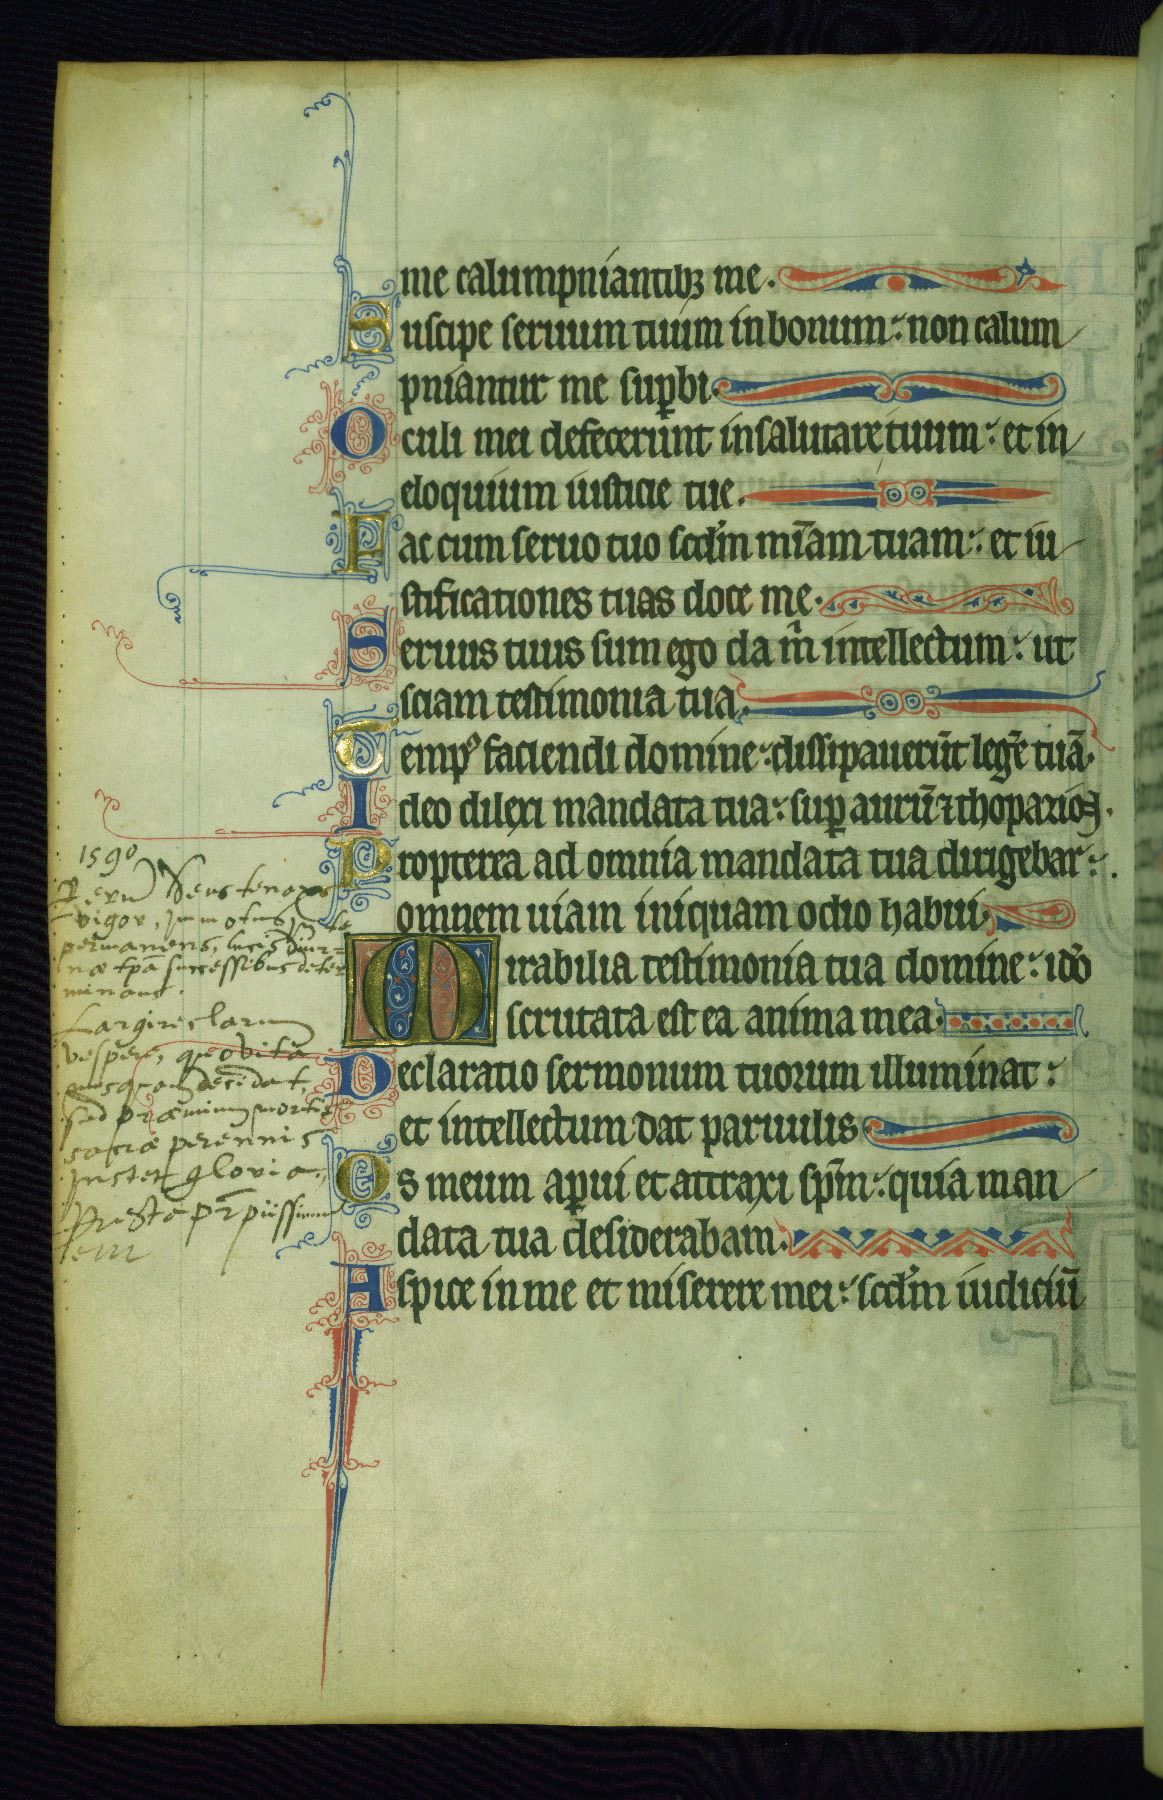 me calumpniantibꝫ me.
Suscipe seruum tuum in bonum: non calum
pniantur me suꝑbi.
Oculi mei defecerunt in salutare tuum: et in
eloquium iusticie tue.
Fac cum seruo tuo scd̄m mīam tuam: et iu
stificationes tuas doce me.
Seruus tuus sum ego da m̄ intellectum: ut
sciam testimonia tua.
Tempꝰ faciendi domine: dissipauerūt legē tuā.
Ideo dilexi mandata tua: suꝑ aurū ⁊ thopazioꝝ.
Propterea ad omnia mandata tua dirigebar:
omnem uiam iniquam odio habui.
Mirabilia testimonia tua domine: ido
scrutata est ea anima mea.
Declaratio sermonum tuorum illuminat:
et intellectum dat paruulis
Os meum aꝑui et attraxi sp̄m: quia man
data tua desiderabam.
Aspice in me et miserere mei: scd̄m iudiciū
1590
Rerū Deus tenax
vigor, immotus in te
permanens, lucis diur=
næ tp̄a successibus deter
minans.
Largire clarum
vespere, quo vita
nusquam decidat,
sed præmium mortis
sacræ perennis
instet gloria.
Præsta pr̄ piissime